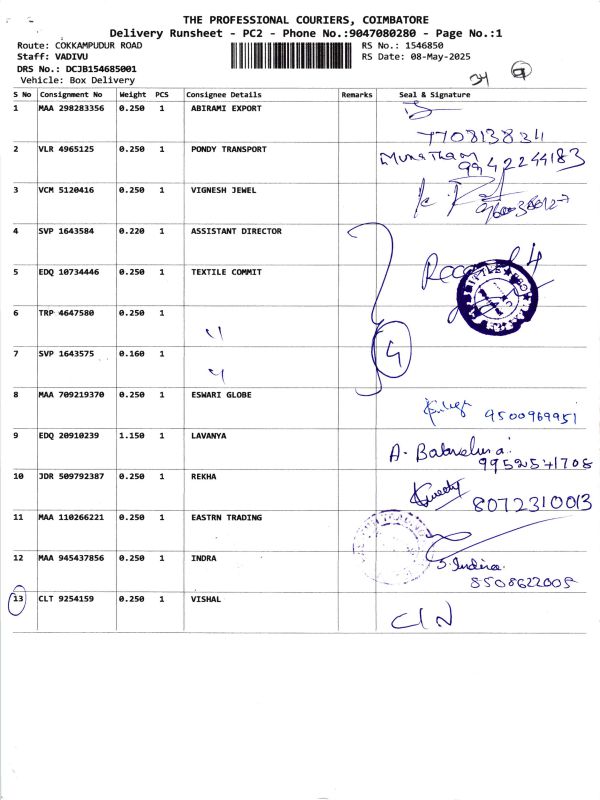 THE PROFESSIONAL COURIERS, COIMBATORE
Delivery Runsheet - PC2 - Phone No.:9047080280 - Page No.:1
Route: COKKAMPUDUR ROAD
Staff: VADIVU
DRS No.: DCJB154685001
Vehicle: Box Delivery
RS No.: 1546850
RS Date: 08-May-2025
S No Consignment No Weight PCS Consignee Details Remarks Seal & Signature
1 MAA 298283356 0.250 1 ABIRAMI EXPORT
7708138311
2 VLR 4965125 0.250 1 PONDY TRANSPORT
9942244183
3 VCM 5120416 0.250 1 VIGNESH JEWEL
4 SVP 1643584 0.220 1 ASSISTANT DIRECTOR
5 EDQ 10734446 0.250 1 TEXTILE COMMIT
Received 4
6 TRP 4647580 0.250 1 "
7 SVP 1643575 0.160 1 "
4
8 MAA 709219370 0.250 1 ESWARI GLOBE
9500969951
9 EDQ 20910239 1.150 1 LAVANYA
9952541708
10 JDR 509792387 0.250 1 REKHA
8072310013
11 MAA 110266221 0.250 1 EASTRN TRADING
12 MAA 945437856 0.250 1 INDRA
S. Indira.
8508622005
13 CLT 9254159 0.250 1 VISHAL
C/N